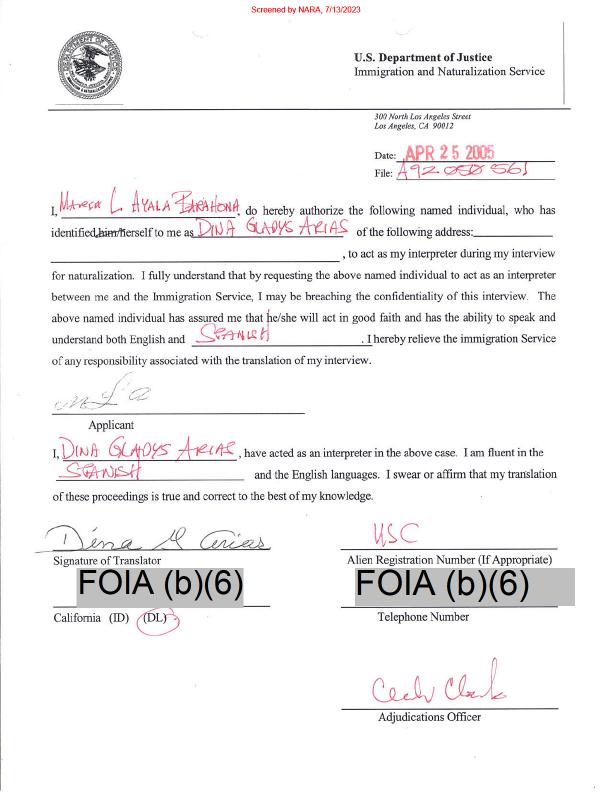 Screened by NARA, 7/13/2023
U.S. Department of Justice
Immigration and Naturalization Service
300 North Los Angeles Street
Los Angeles, CA 90012
Date: APR 25 2005
File: A92 050 561
I, L. AYALA BARAHONA, do hereby authorize the following named individual, who has
identified him/herself to me as DINA GLADYS ARIAS of the following address:
, to act as my interpreter during my interview
for naturalization. I fully understand that by requesting the above named individual to act as an interpreter
between me and the Immigration Service, I may be breaching the confidentiality of this interview. The
above named individual has assured me that he/she will act in good faith and has the ability to speak and
understand both English and SPANISH. I hereby relieve the immigration Service
of any responsibility associated with the translation of my interview.
Applicant
I, DINA GLADYS ARIAS, have acted as an interpreter in the above case. I am fluent in the
SPANISH and the English languages. I swear or affirm that my translation
of these proceedings is true and correct to the best of my knowledge.
Dina G Arias USC
Signature of Translator Alien Registration Number (If Appropriate)
FOIA (b)(6) FOIA (b)(6)
California (ID) (DL) Telephone Number
Clark
Adjudications Officer